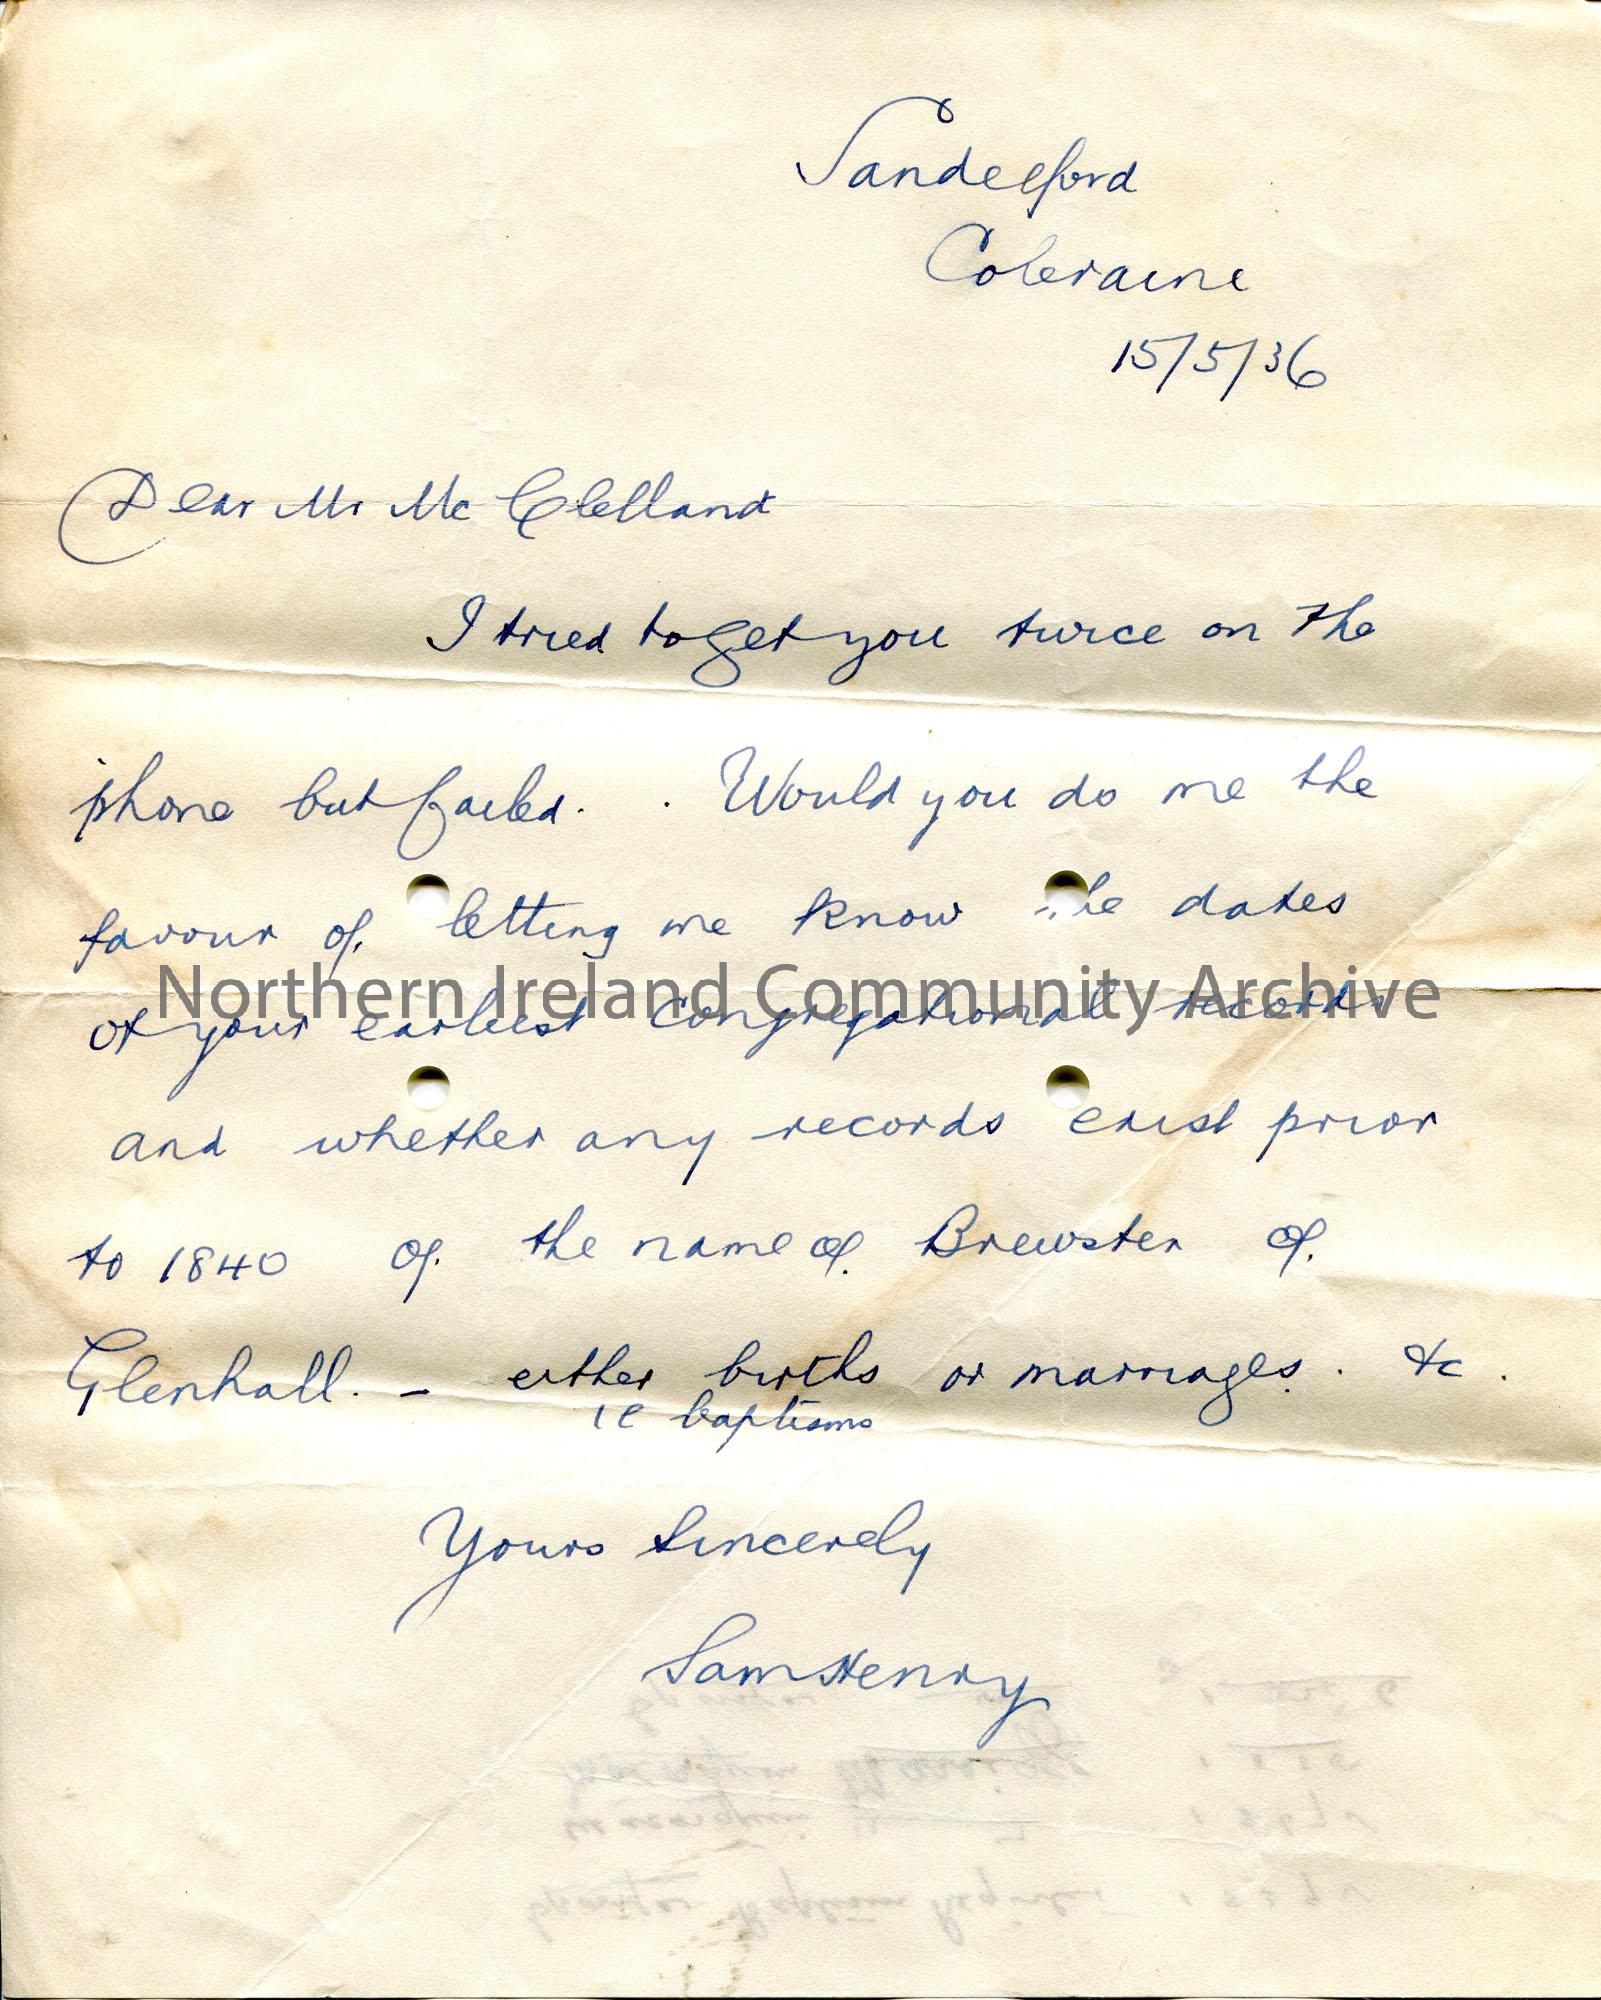 Sandelford
Coleraine
15/5/36
Dear Mr Mc Clelland
I tried to get you twice on the
'phone but failed. . Would you do me the
favour of letting me know the dates
Northern Ireland Community Archive
of your earliest congregational records
and whether any records exist prior
to 1840 of the name of Brewster of
Glenhall. - either births or marriages. &c.
ie baptisms
Yours Sincerely
Sam Henry